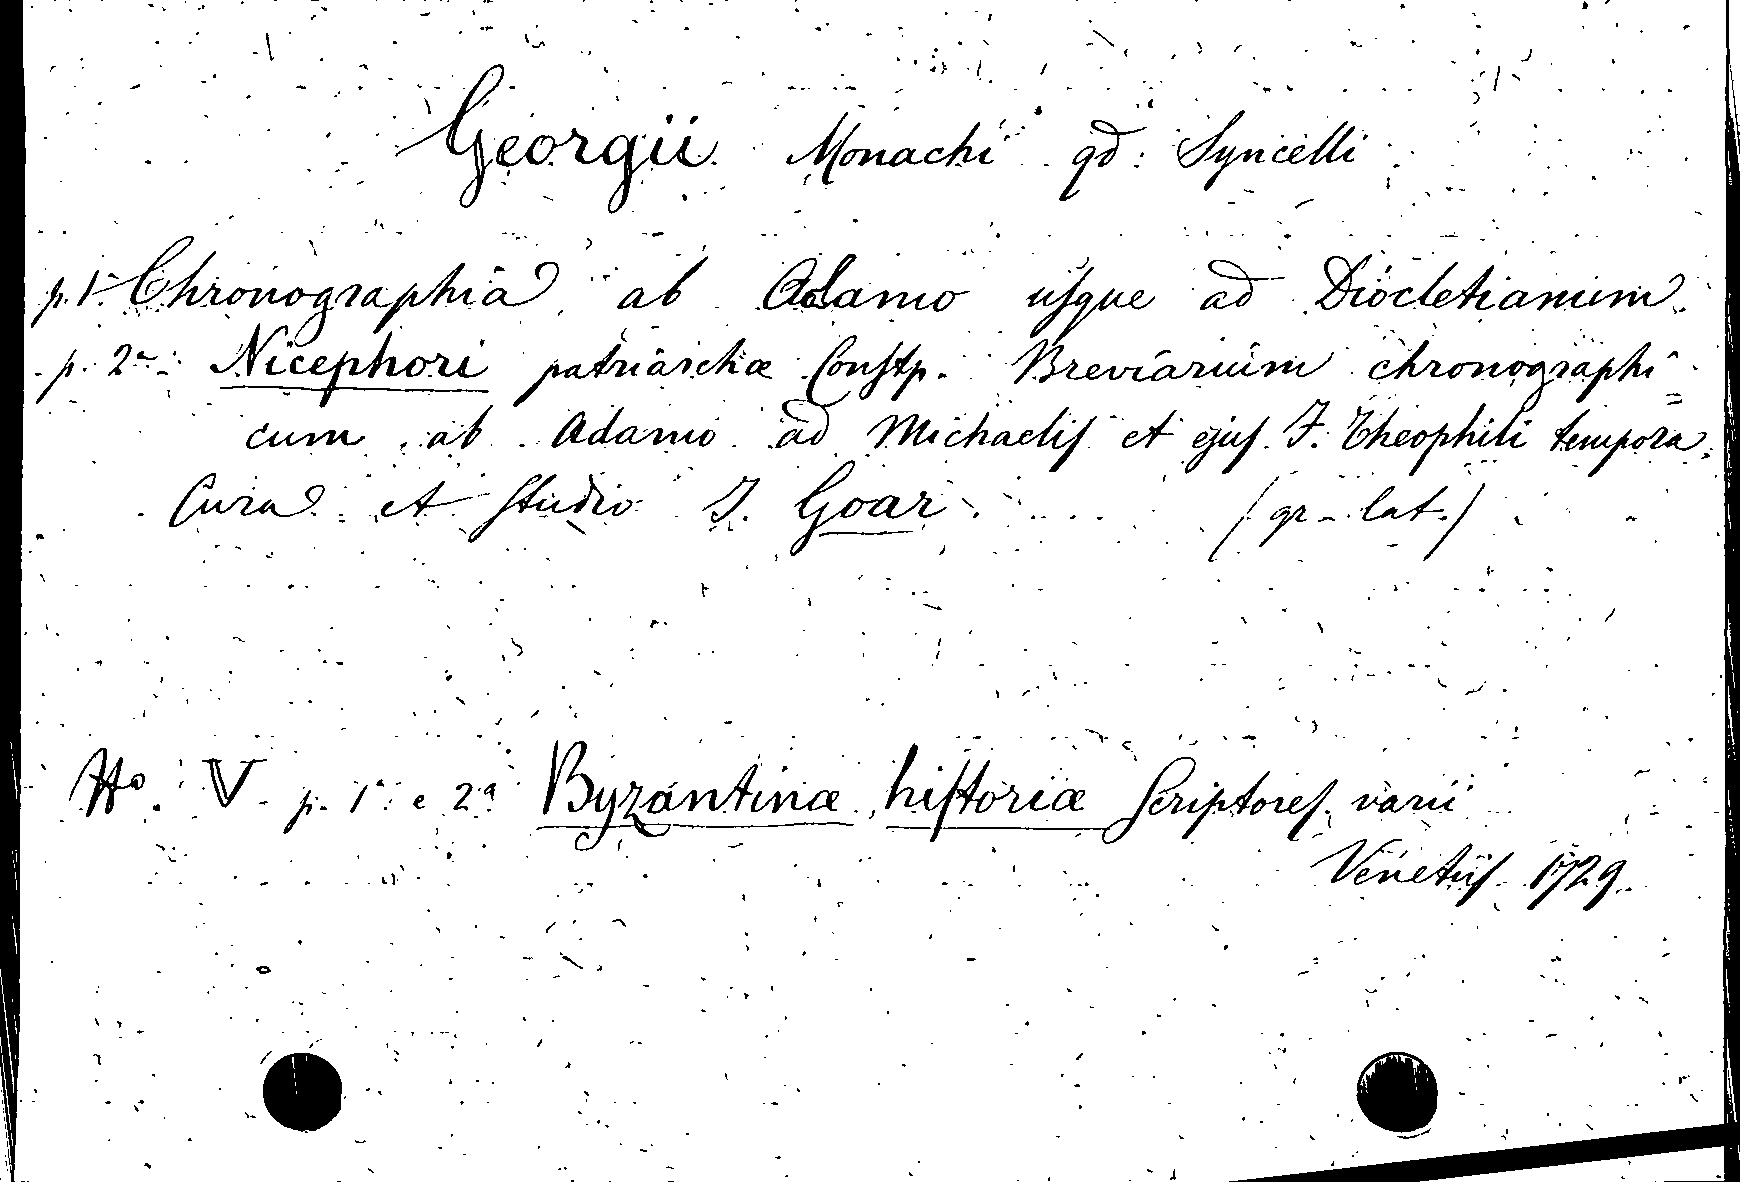 Georgii Monachi qd: Syncelli
p. 1. Chronographia ab Adamo usque ad Diocletianum.
p. 2a. Nicephori patriarchæ Constp. Breviarium chronographi=
cum ab Adamo ad Michaelis et ejus F. Theophili tempora.
Cura et studio J. Goar. (gr-lat.)
V. p. 1a e 2a Byzantinæ historiæ scriptores varii
Venetiis 1729.